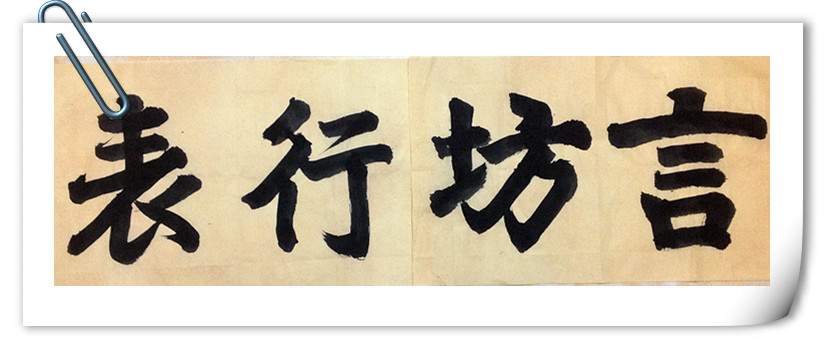 言坊行表